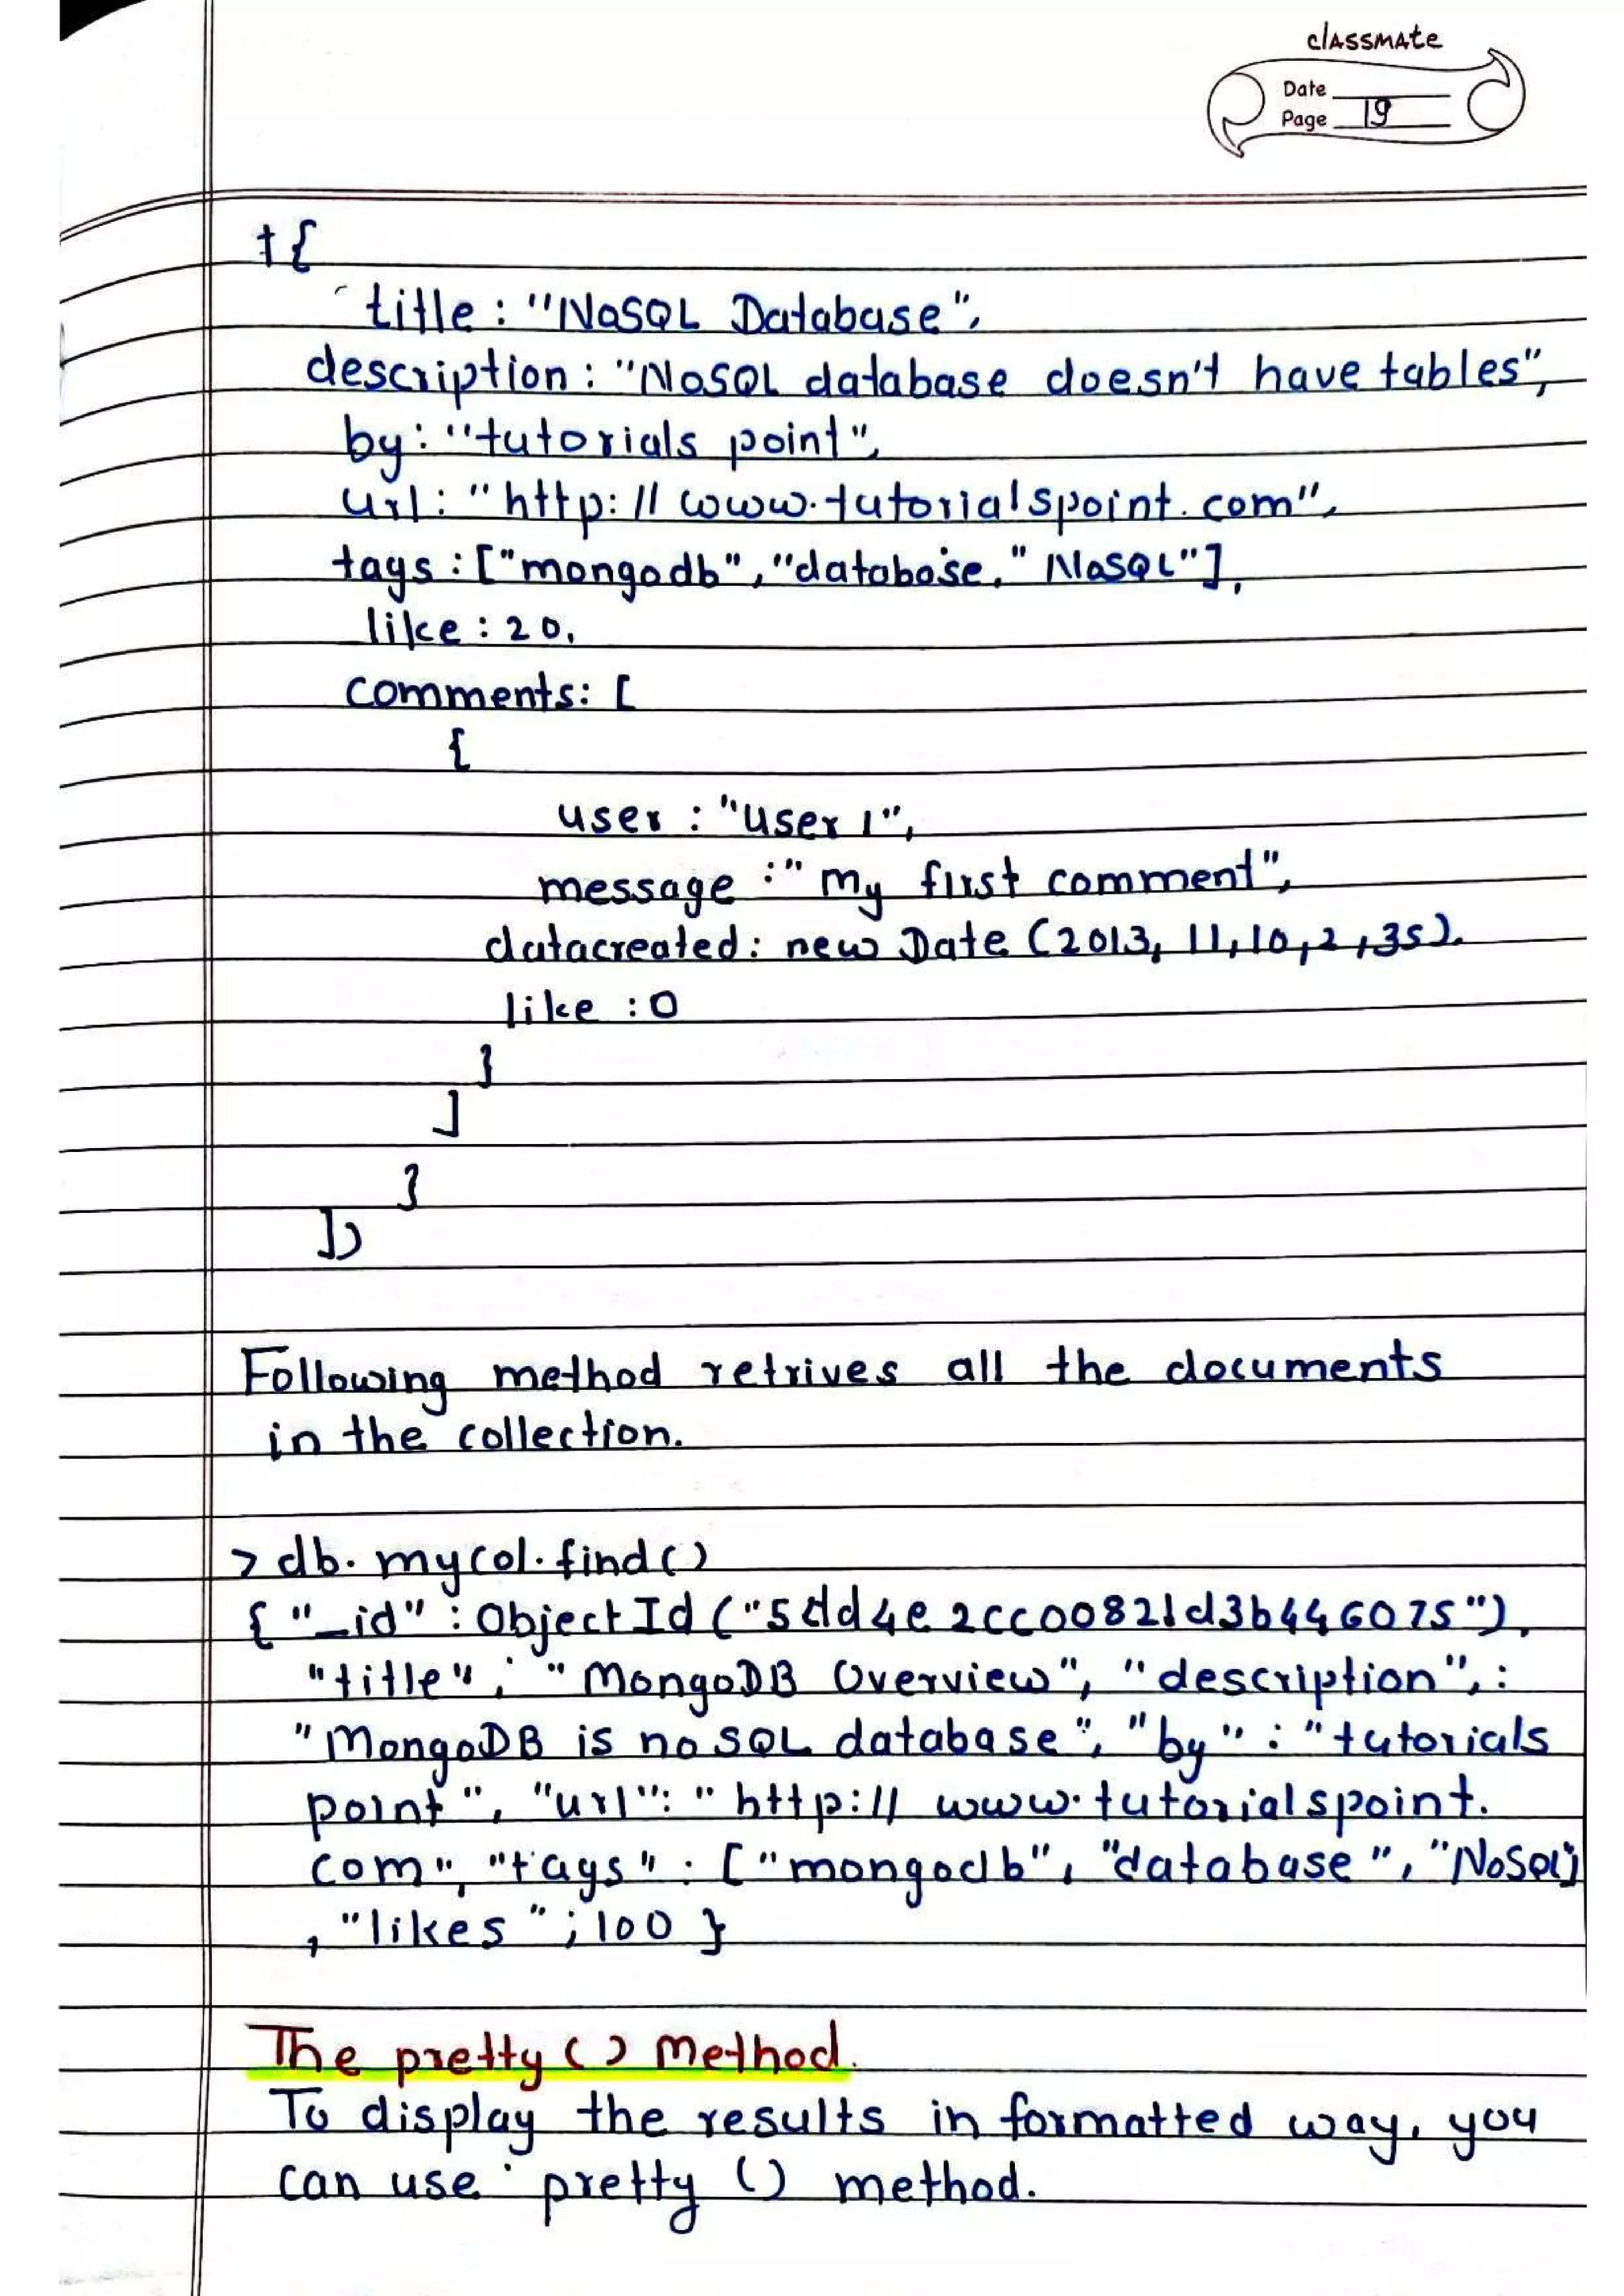 classmate
Date
Page 19
+{
title : "NoSQL Database",
description : "NoSQL database doesn't have tables",
by : "tutorials point",
url : "http: // www.tutorialspoint.com",
tags : ["mongodb", "database," NoSQL"],
like : 20,
comments: [
{
user : "user 1",
message :" my first comment",
datacreated : new Date (2013, 11,10,2,35),
like : 0
}
]
}
])
Following method retrives all the documents
in the collection.
> db. mycol. find()
{ "_id" : Object Id ("5dd4e2cc00821d3b446075"),
"title" : "MongoDB Overview", "description", :
"MongoDB is no SQL database", "by" : "tutorials
point", "url": " http:// www.tutorialspoint.
com", "tags" : ["mongodb", "database", "NoSQL"]
, "likes" ; 100 }
The pretty () Method.
To display the results in formatted way, you
can use pretty () method.